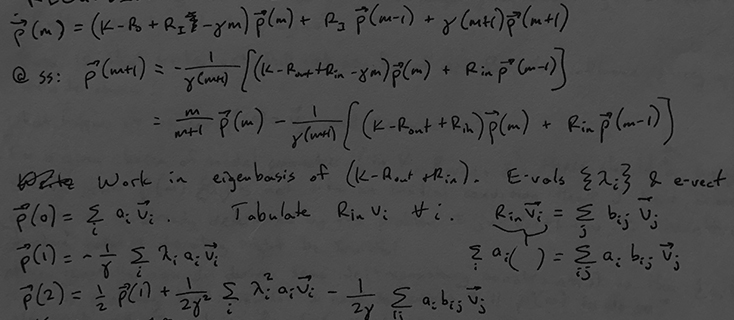 ṗ⃗(m) = (K - R₀ + R_I - γm) p⃗(m) + R_I p⃗(m-1) + γ(m+1) p⃗(m+1)
@ ss: p⃗(m+1) = - 1/γ(m+1) [(K - R_out + R_in - γm) p⃗(m) + R_in p⃗(m-1)]
= m/m+1 p⃗(m) - 1/γ(m+1) [(K - R_out + R_in) p⃗(m) + R_in p⃗(m-1)]
Work in eigenbasis of (K - R_out + R_in). E-vals {λ_i} & e-vect
p⃗(0) = Σ_i a_i v⃗_i. Tabulate R_in v_i ∀ i. R_in v⃗_i = Σ_j b_ij v⃗_j
p⃗(1) = - 1/γ Σ_i λ_i a_i v⃗_i Σ_i a_i ( ) = Σ_ij a_i b_ij v⃗_j
p⃗(2) = 1/2 p⃗(1) + 1/2γ² Σ_i λ_i² a_i v⃗_i - 1/2γ Σ_ij a_i b_ij v⃗_j